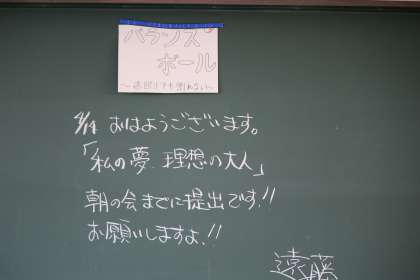 バランス
ボール
おはようございます。
「私の夢 理想の大人」
朝の会までに提出です!!
お願いしますよ!!
遠藤